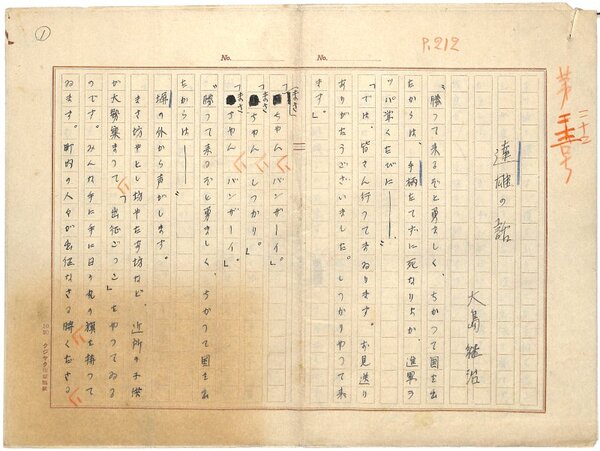 ①
P.212
No.
No.
達雄の話
大島継治
「勝つて来るぞと勇ましく、ちかつて国を出
たからは、手柄たてずに死なりよか、進軍ラ
ッパ学くたびに――
「では、皆さん行つてまゐります。お見送り
ありがたうございました。しつかりやつて来
ます」
「まさちゃん バンザーイ」
「まさちゃん しつかり。」
「まさちゃん バンザーイ」
「勝つて来るぞと勇ましく、ちかつて国を出
たからは――
塀の外から声がします。
まさ坊やとし坊やたき坊など、近所の子供
が大勢集まつて「出征ごつこ」をやつてゐる
のです。みんな手に手に日の丸の旗を持つて
ゐます。町内の人々が出征なさる時くださる